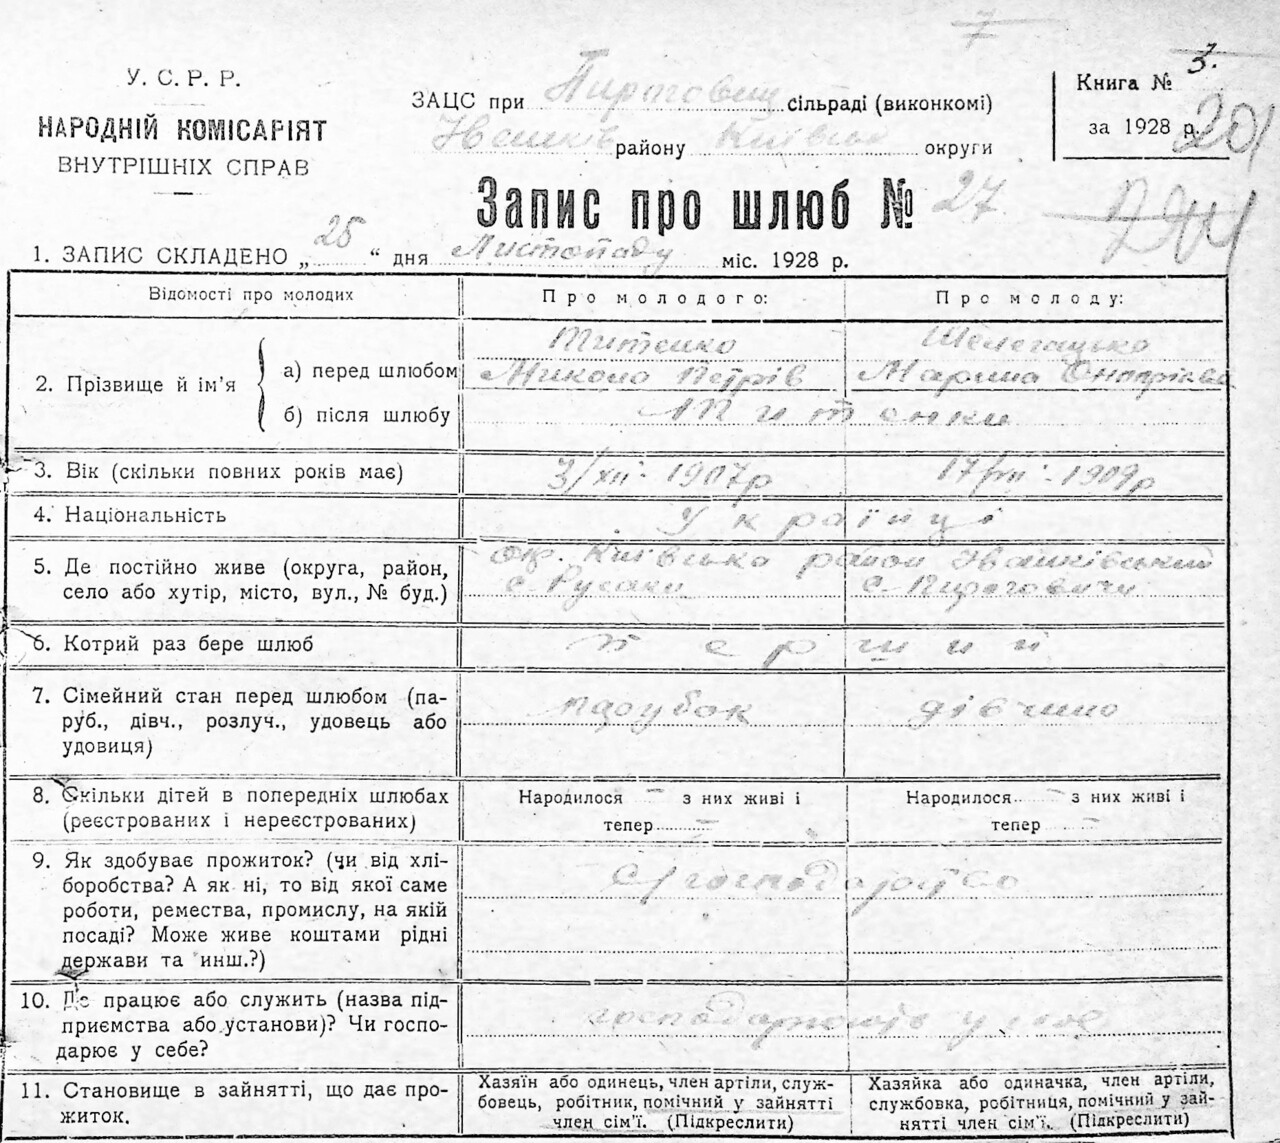 7
У. С. Р. Р.
НАРОДНІЙ КОМІСАРІЯТ
ВНУТРІШНІХ СПРАВ
ЗАЦС при Пироговиц сільраді (виконкомі)
району Київсько округи
Книга № 3.
за 1928 р. 201
204
Запис про шлюб № 27.
1. ЗАПИС СКЛАДЕНО „25“ дня Листопаду міс. 1928 р.
Відомості про молодих
Про молодого:
Про молоду:
2. Прізвище й ім’я
а) перед шлюбом
Титенко
Микола Петрів
Марина Онопріева
б) після шлюбу
Титенки
3. Вік (скільки повних років має)
3/XII 1907р
1909р
4. Національність
Українці
5. Де постійно живе (округа, район,
село або хутір, місто, вул., № буд.)
окр. Київсько район Іванківський
с. Русаки
с. Пироговичи
6. Котрий раз бере шлюб
перший
7. Сімейний стан перед шлюбом (па-
руб., дівч., розлуч., удовець або
удовиця)
парубок
дівчино
8. Скільки дітей в попередніх шлюбах
(реєстрованих і нереєстрованих)
Народилося – з них живі і
тепер –
Народилося – з них живі і
тепер –
9. Як здобуває прожиток? (чи від хлі-
боробства? А як ні, то від якої саме
роботи, ремества, промислу, на якій
посаді? Може живе коштами рідні
держави та инш.?)
С/господарство
10. Де працює або служить (назва під-
приємства або установи)? Чи госпо-
дарює у себе?
господарюють у себе
11. Становище в зайнятті, що дає про-
житок.
Хазяїн або одинець, член артіли, служ-
бовець, робітник, помічний у зайнятті
член сім’ї. (Підкреслити)
Хазяйка або одиначка, член артіли,
службовка, робітниця, помічний у зай-
нятті член сім’ї. (Підкреслити)